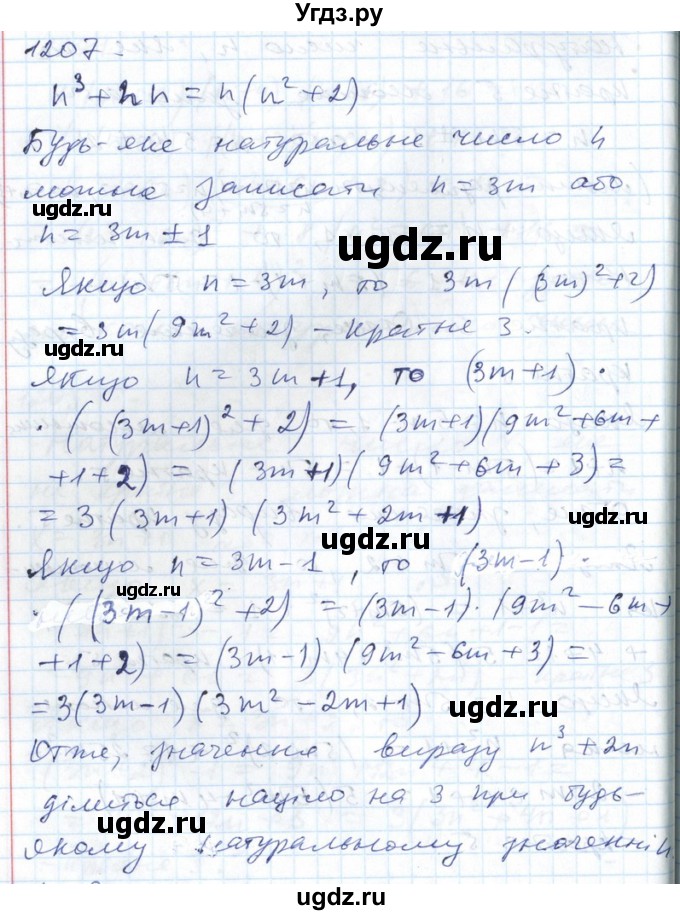 Угдз.ру
1207.
n³ + 2n = n(n² + 2)
Будь-яке натуральне число n
можна записати n = 3m або
ugdz.ru
n = 3m ± 1
ugdz.ru
Якщо n = 3m, то 3m((3m)² + 2)
= 3m(9m² + 2) – кратне 3.
ugdz.ru
Якщо n = 3m+1, то (3m+1) ·
· ((3m+1)² + 2) = (3m+1)(9m² + 6m +
ugdz.ru
+1+2) = (3m+1)(9m² + 6m + 3) =
= 3(3m+1)(3m² + 2m + 1)
ugdz.ru
ugdz.ru
Якщо n = 3m-1, то (3m-1) ·
ugdz.ru
· ((3m-1)² + 2) = (3m-1)·(9m² – 6m +
+1+2) = (3m-1)(9m² – 6m + 3) =
= 3(3m-1)(3m² – 2m + 1)
ugdz.ru
Отже, значення виразу n³ + 2n
ділиться націло на 3 при будь-
ugdz.ru
ugdz.ru
якому натуральному значенні n
ugdz.ru